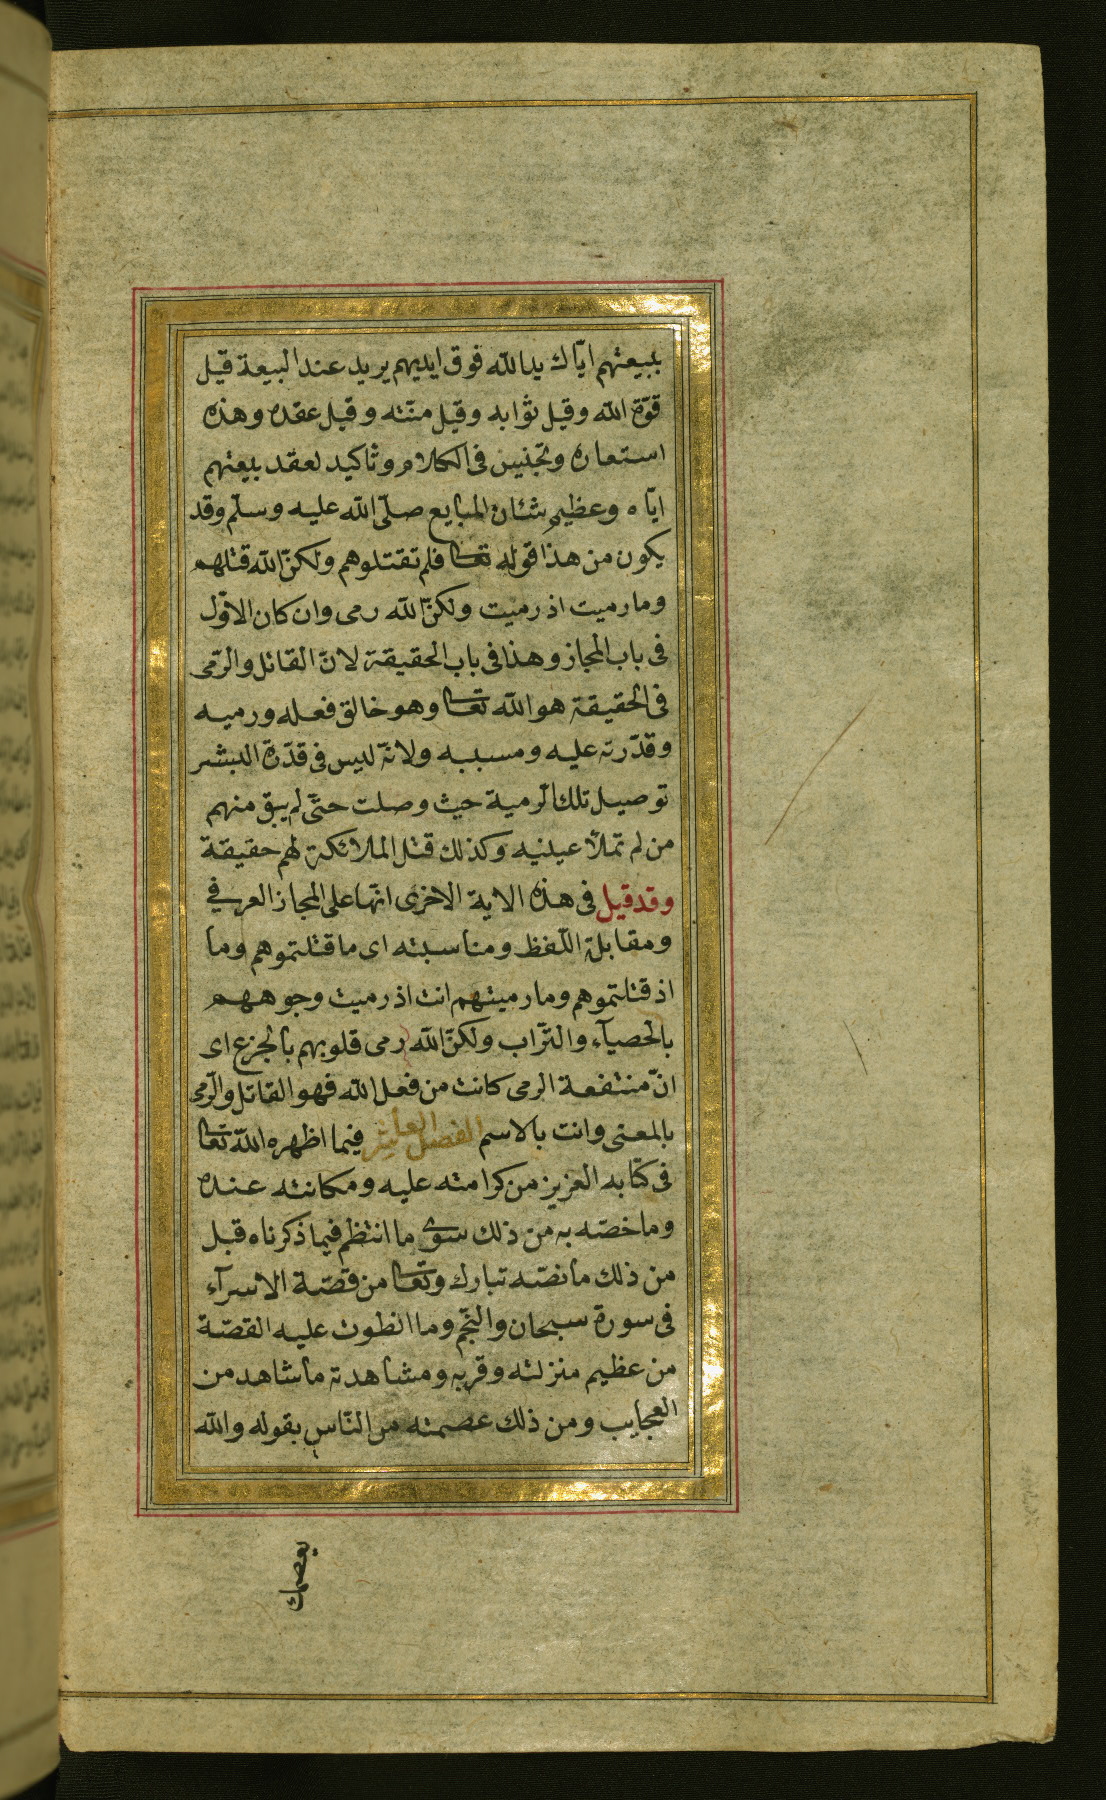 ببيعتهم اياك يد الله فوق ايديهم يريد عند البيعة قيل
قوّة الله وقيل ثوابه وقيل منّته وقيل عقده وهذه
استعارة وتجنيس فى الكلام وتاكيد لعقد بيعتهم
ايّاه وعظيم شئان المبايع صلّى الله عليه وسلّم وقد
يكون من هذا قوله تعا فلم تقتلوهم ولكنّ الله قتلهم
وما رميت اذ رميت ولكنّ الله رمى وان كان الاوّل
فى باب المجاز وهذا فى باب الحقيقة لانّ القاتل والرّمى
فى الحقيقة هو الله تعا وهو خالق فعله ورميه
وقدّرته عليه ومسببه ولانّه ليس فى قدّرة البشر
توصيل تلك الرمية حيث وصلت حتّى لم يبق منهم
من لم تملأ عينيه وكذلك قتل الملائكة لهم حقيقة
وقد قيل فى هذه الاية الاخرى انّها على المجاز العرفي
ومقابلة اللّفظ ومناسبته اى ما قتلتموهم وما
اذ قتلتموهم وما رميتهم انت اذ رميت وجوههم
بالحصبآء والتّراب ولكنّ الله رمى قلوبهم بالجزع اى
انّ منتفعة الرمى كانت من فعل الله فهو القاتل والرّمى
بالمعنى وانت بالاسم الفصل العاشر فيما اظهره الله تعا
فى كتابه العزيز من كرامته عليه ومكانته عنده
وما خصّه به من ذلك سوى ما انتظم فيما ذكرناه قبل
من ذلك ما نصّه تبارك وتعا من قصّة الاسرآء
فى سورة سبحان والنّجم وما انطوت عليه القصّة
من عظيم منزلته وقربه ومشاهدته ما شاهد من
العجايب ومن ذلك عصمته من النّاس بقوله والله
يعصمك